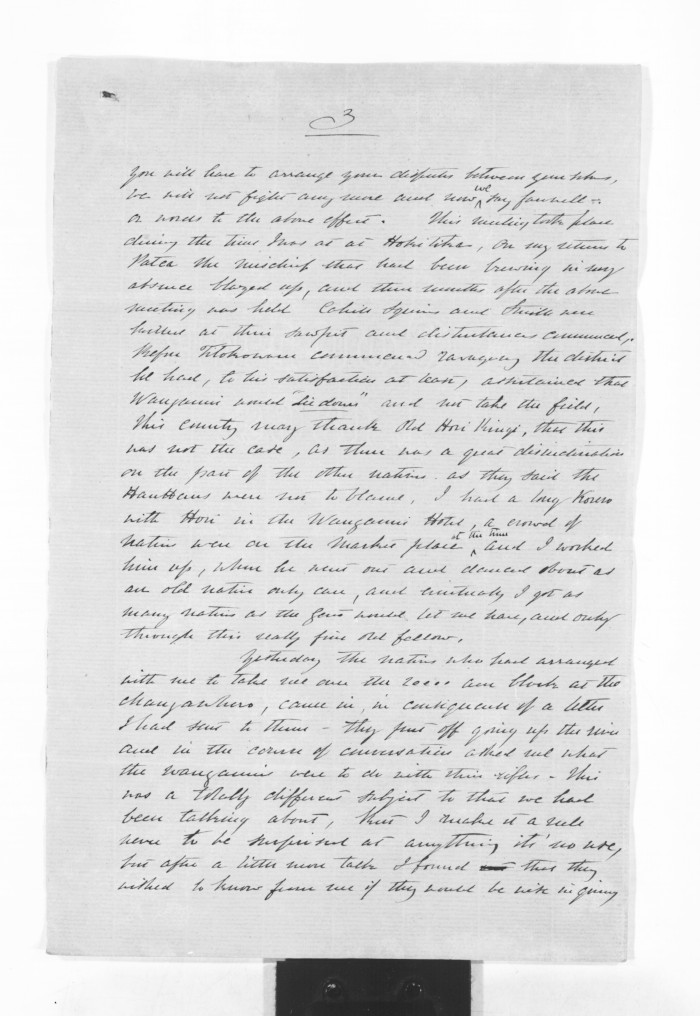 3
you will have to arrange your disputes between yourselves,
we will not fight any more and now we say farewell -
or words to the above effect. This meeting took place
during the time I was at at Hokitika, on my return to
Patea the mischief that had been brewing in my
absence blazed up, and three months after the above
meeting was held Cahill Squires and Smith were
killed at their sawpit and disturbances commenced,
Before Titokowaru commenced ravaging the district
he had, to his satisfaction at least, ascertained that
Wanganui would "lie down" and not take the field,
This country may thank Old Hori Kingi, that this
was not the case, as there was a great disinclination
on the part of the other natives as they said the
Hauhaus were not to blame, I had a long Korero
with Hori in the Wanganui Hotel, a crowd of
natives were on the market place at the time and I worked
him up, when he went out and danced about as
an old native only can, and eventually I got as
many natives as the Govt would let me have, and only
through this really fine old fellow.
Yesterday the natives who had arranged
with me to take me over the 20000 acre block at the
came in, in consequence of a letter
I had sent to them - they put off going up the river
and in the course of conversation asked me what
the Wanganuis were to do with their rifles - This
was a totally different subject to that we had
been talking about, but I make it a rule
never to be surprised at anything its' no use,
but after a little more talk I found that they
wished to know from me if they would be wise in giving